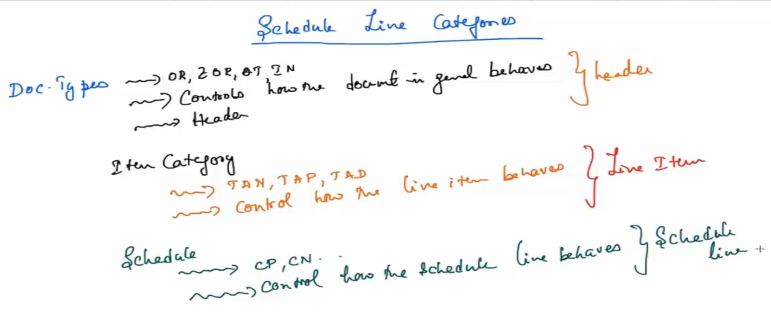 Schedule Line Categories
Doc. Types → OR, ZOR, QT, IN
→ Controls how the document in genral behaves } header
→ Header
Item Category
→ TAN, TAP, TAD
→ Control how the line item behaves } Line Item
Schedule
→ CP, CN.
→ Control how the schedule line behaves } Schedule line